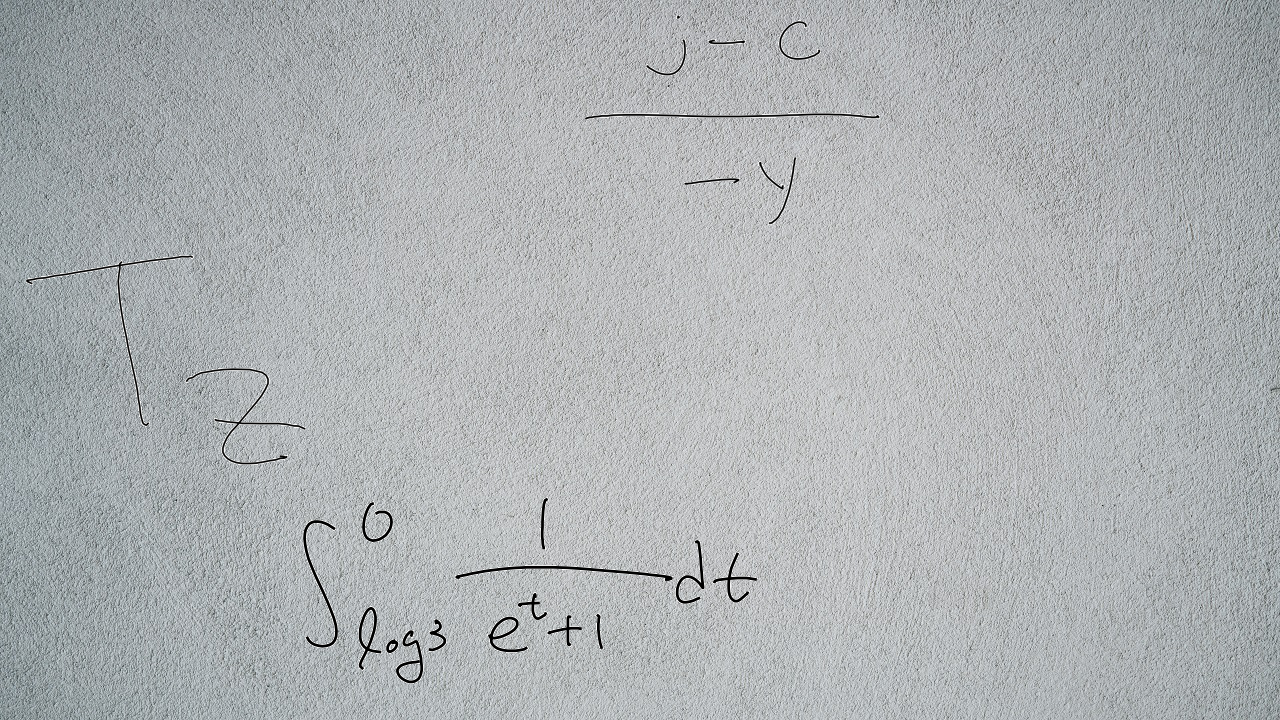 \frac{j - c}{-y}
T_z
\int_{\log 3}^{0} \frac{1}{e^t + 1} dt